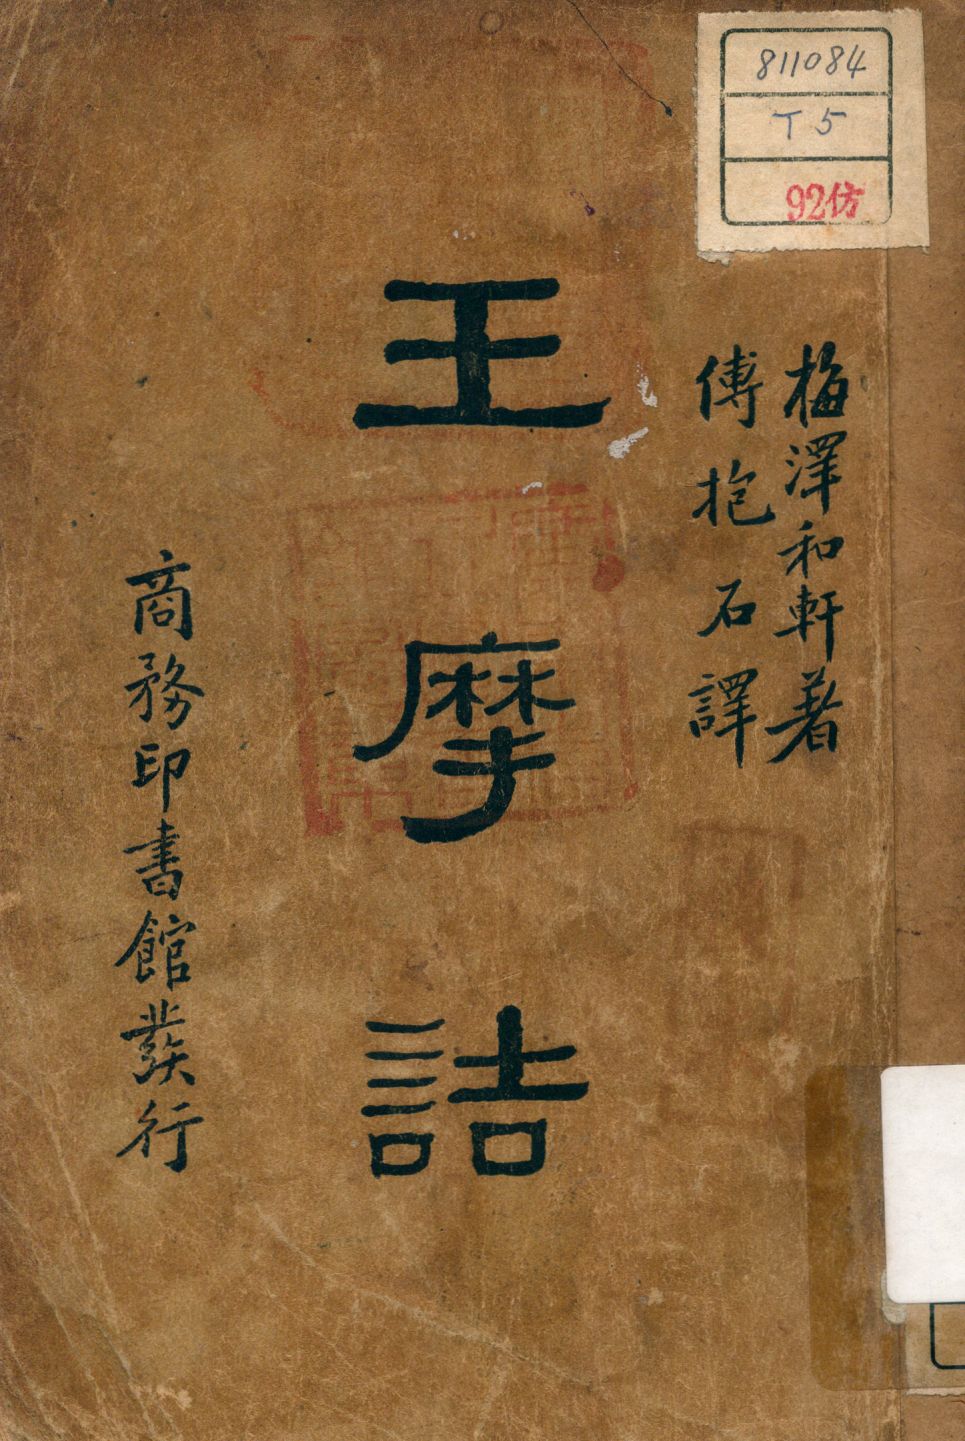 811084
T5
92仿
梅澤和軒著
傅抱石譯
王摩詰
商務印書館發行